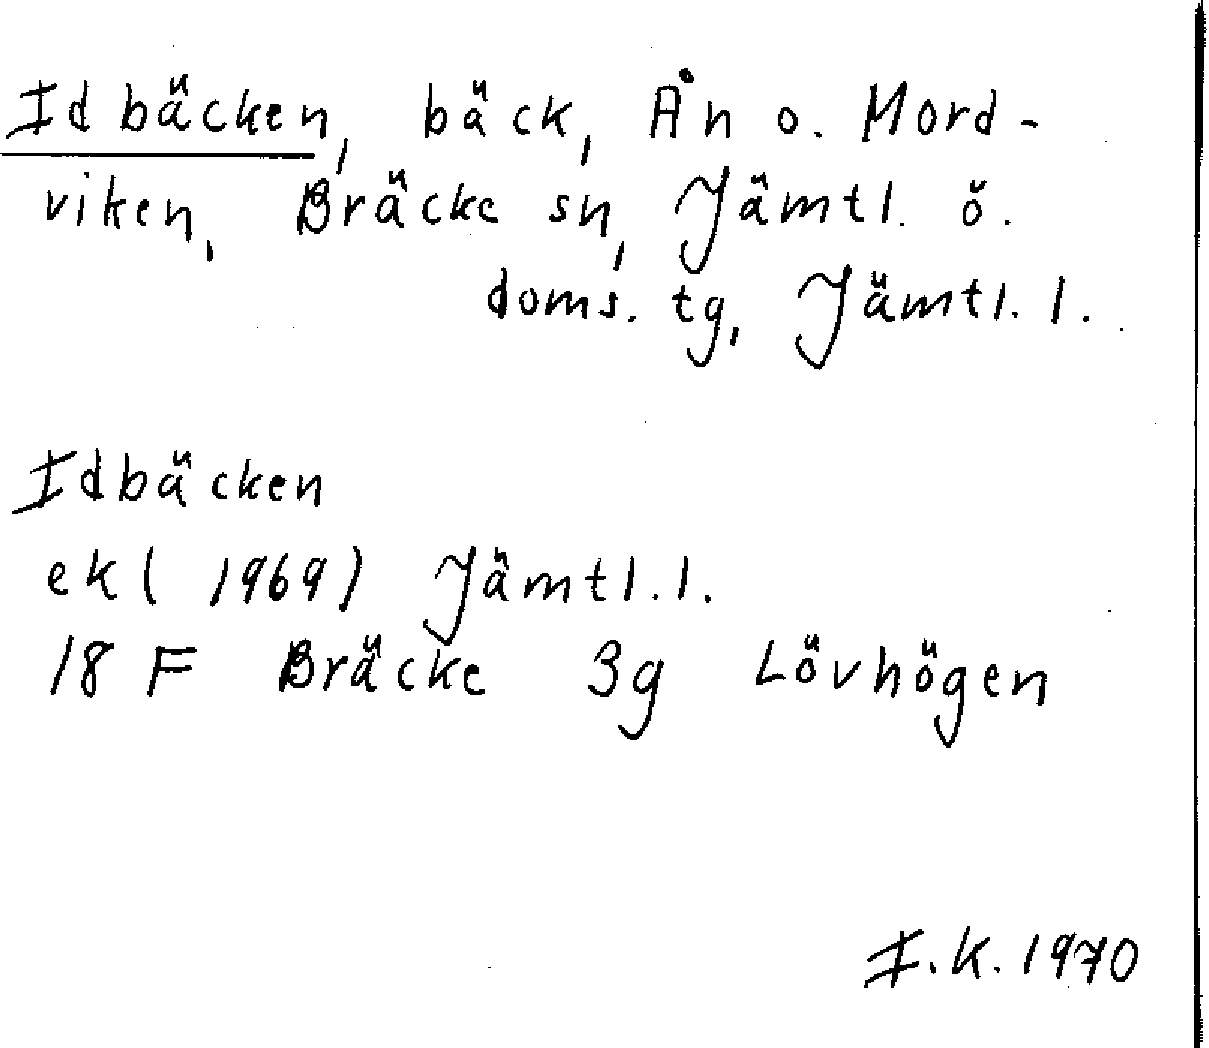 Idbäcken, bäck, Ån o. Mord-
viken, Bräcke sn, Jämtl. ö.
doms. tg, Jämtl. l.
Idbäcken
ek ( 1969) Jämtl. l.
18 F Bräcke 3g Lövhögen
I. K. 1970